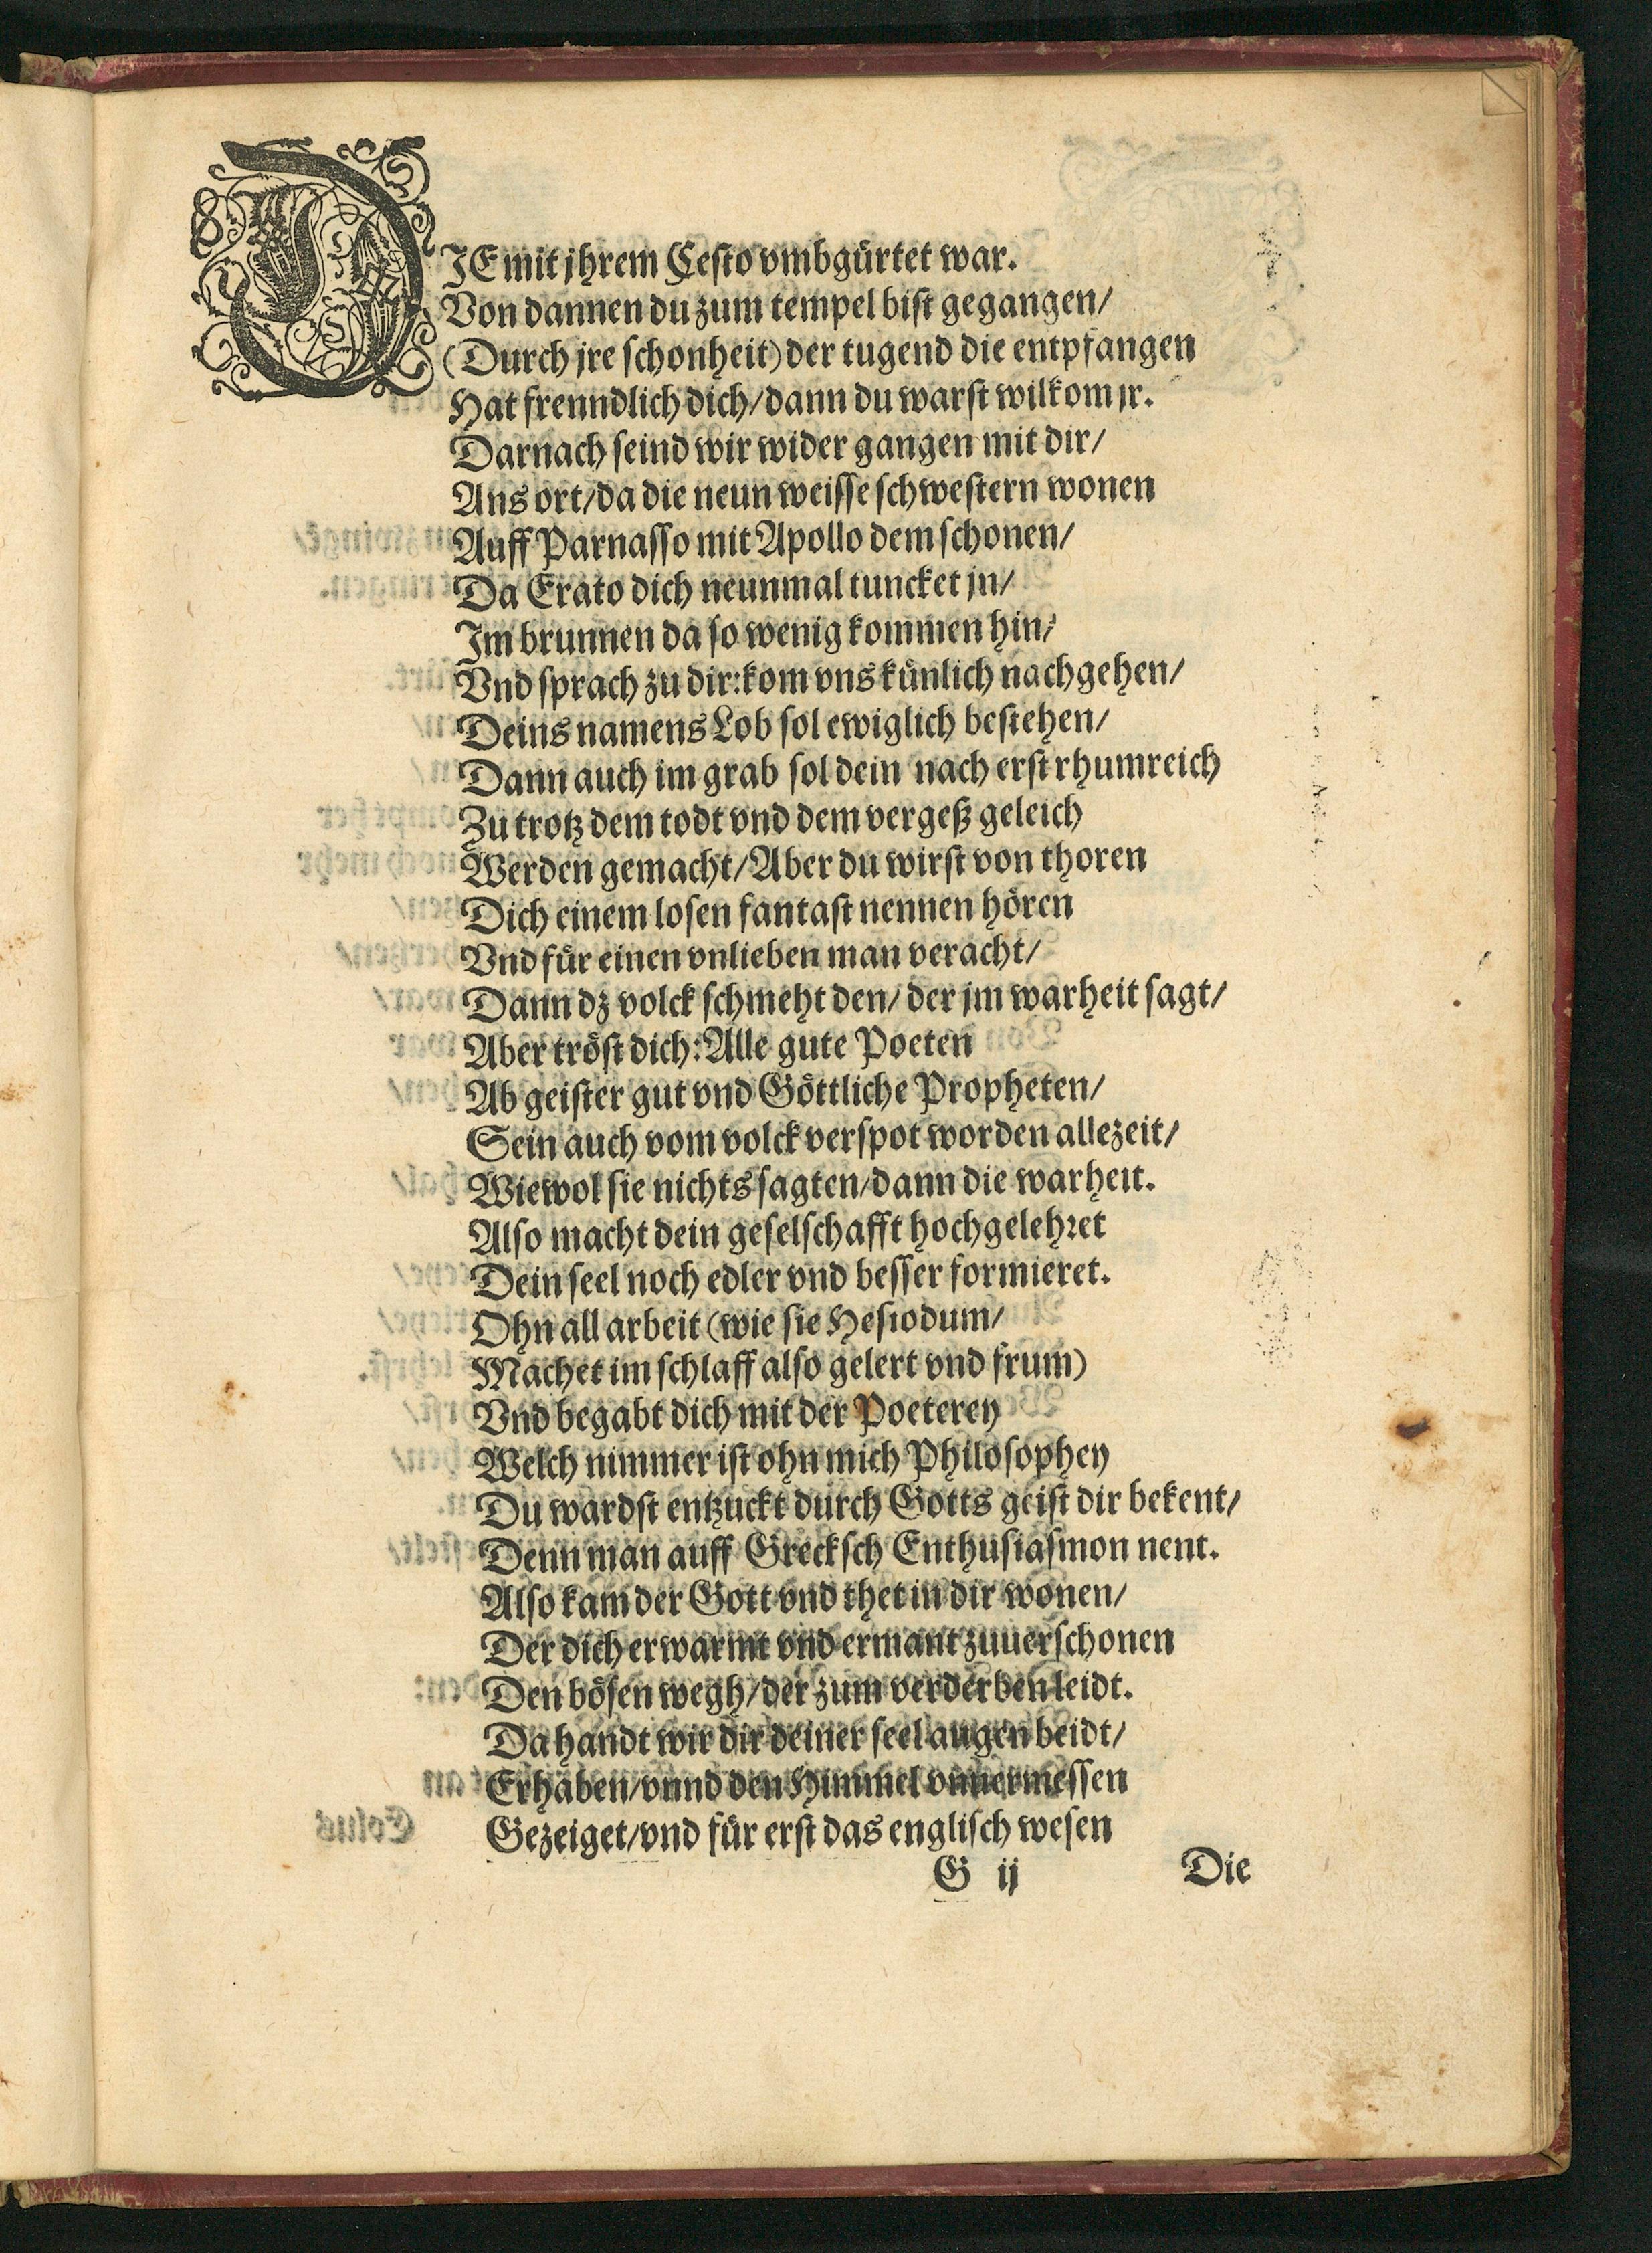 DIE mit jhrem Cesto vmbgürtet war.
Von dannen du zum tempel bist gegangen/
(Durch jre schonheit) der tugend die entpfangen
Hat frenndlich dich/dann du warst wilkom jr.
Darnach seind wir wider gangen mit dir/
Ans ort/da die neun weisse schwestern wonen
Auff Parnasso mit Apollo dem schonen/
Da Erato dich neunmal tuncket jn/
Im brunnen da so wenig kommen hin/
Vnd sprach zu dir: kom vns künlich nachgehen/
Deins namens Lob sol ewiglich bestehen/
Dann auch im grab sol dein nach erst rhumreich
Zu trotz dem todt vnd dem vergeß geleich
Werden gemacht/Aber du wirst von thoren
Dich einem losen fantast nennen hören
Vnd für einen vnlieben man veracht/
Dann dz volck schmeht den/ der jm warheit sagt/
Aber tröst dich: Alle gute Poeten
Ab geister gut vnd Göttliche Propheten/
Sein auch vom volck verspot worden allezeit/
Wiewol sie nichts sagten/dann die warheit.
Also macht dein geselschafft hochgelehret
Dein seel noch edler vnd besser formieret.
Ohn all arbeit (wie sie Hesiodum/
Machet im schlaff also gelert vnd frum)
Vnd begabt dich mit der Poeterey
Welch nimmer ist ohn mich Philosophey
Du wardst entzuckt durch Gotts geist dir bekent/
Denn man auff Grecksch Enthusiasmon nent.
Also kam der Gott vnd thet in dir wonen/
Der dich erwarmt vnd ermant zuuerschonen
Den bösen wegh/der zum verderben leidt.
Da handt wir dir deiner seel augen beidt/
Erhaben/vnnd den Himmel vnuermessen
Gezeiget/vnd für erst das englisch wesen
G ij Die